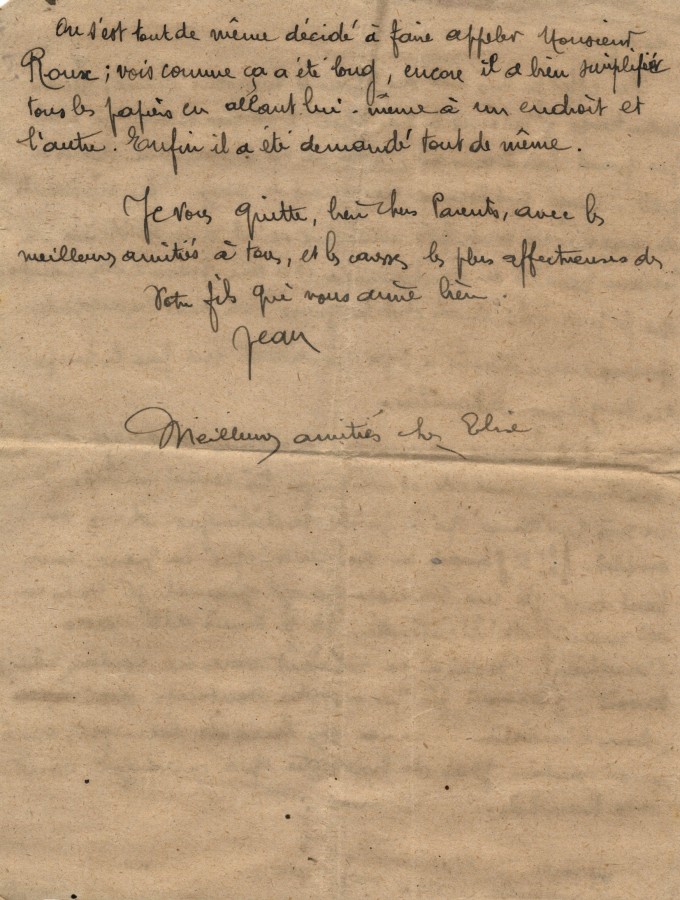 On s'est tout de même décidé à faire appeler Monsieur
Roux ; vois comme ça a été long, encore il a bien simplifié
tous les papiers en allant lui-même à un endroit et
l'autre. Enfin il a été demandé tout de même.
Je vous quitte, bien chers Parents, avec les
meilleures amitiés à tous, et les caresses les plus affectueuses de
Votre fils qui vous aime bien.
Jean
Meilleures amitiés chez Elise